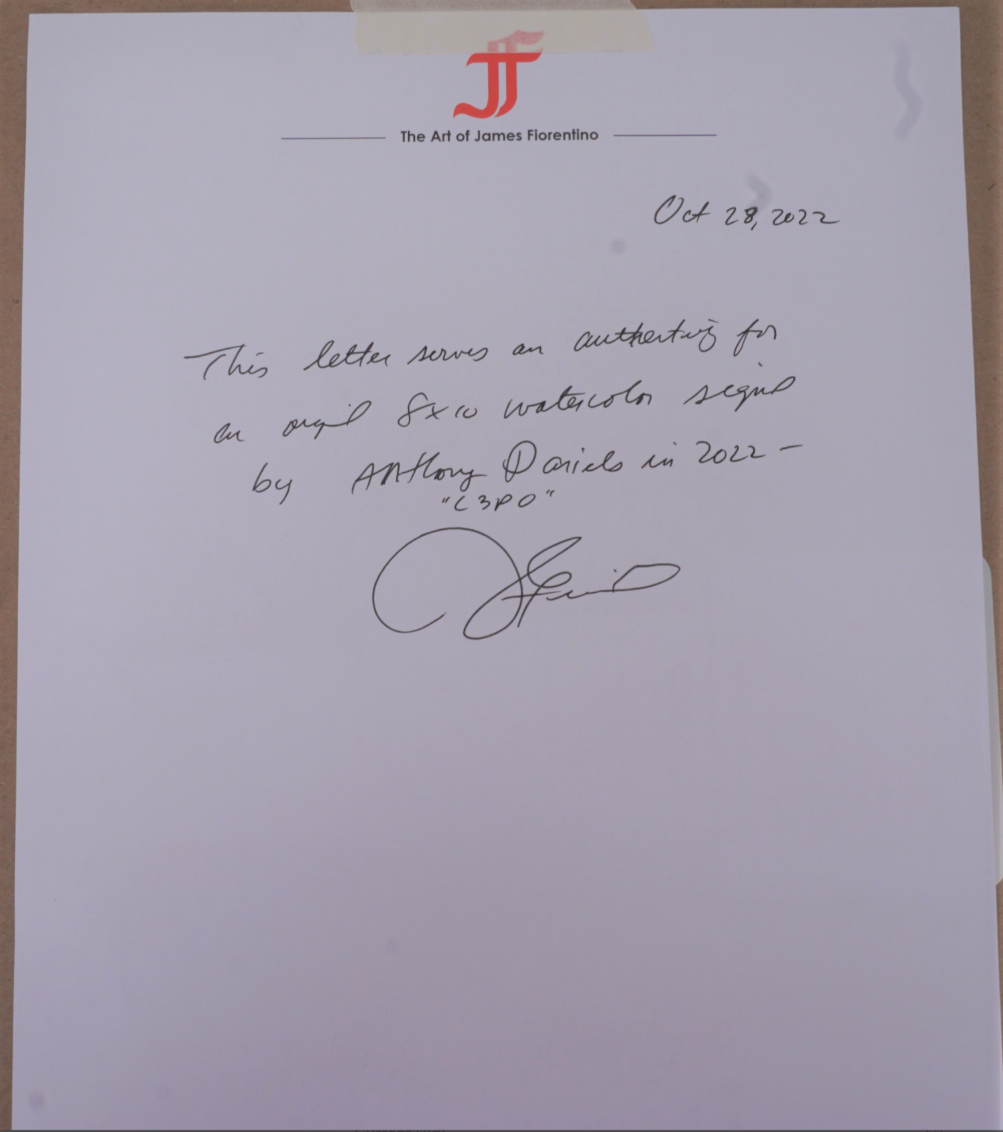 JF
The Art of James Fiorentino
Oct 28, 2022
This letter serves an authenticity for
an original 8x10 watercolor signed
by Anthony Daniels in 2022 -
"C3PO"